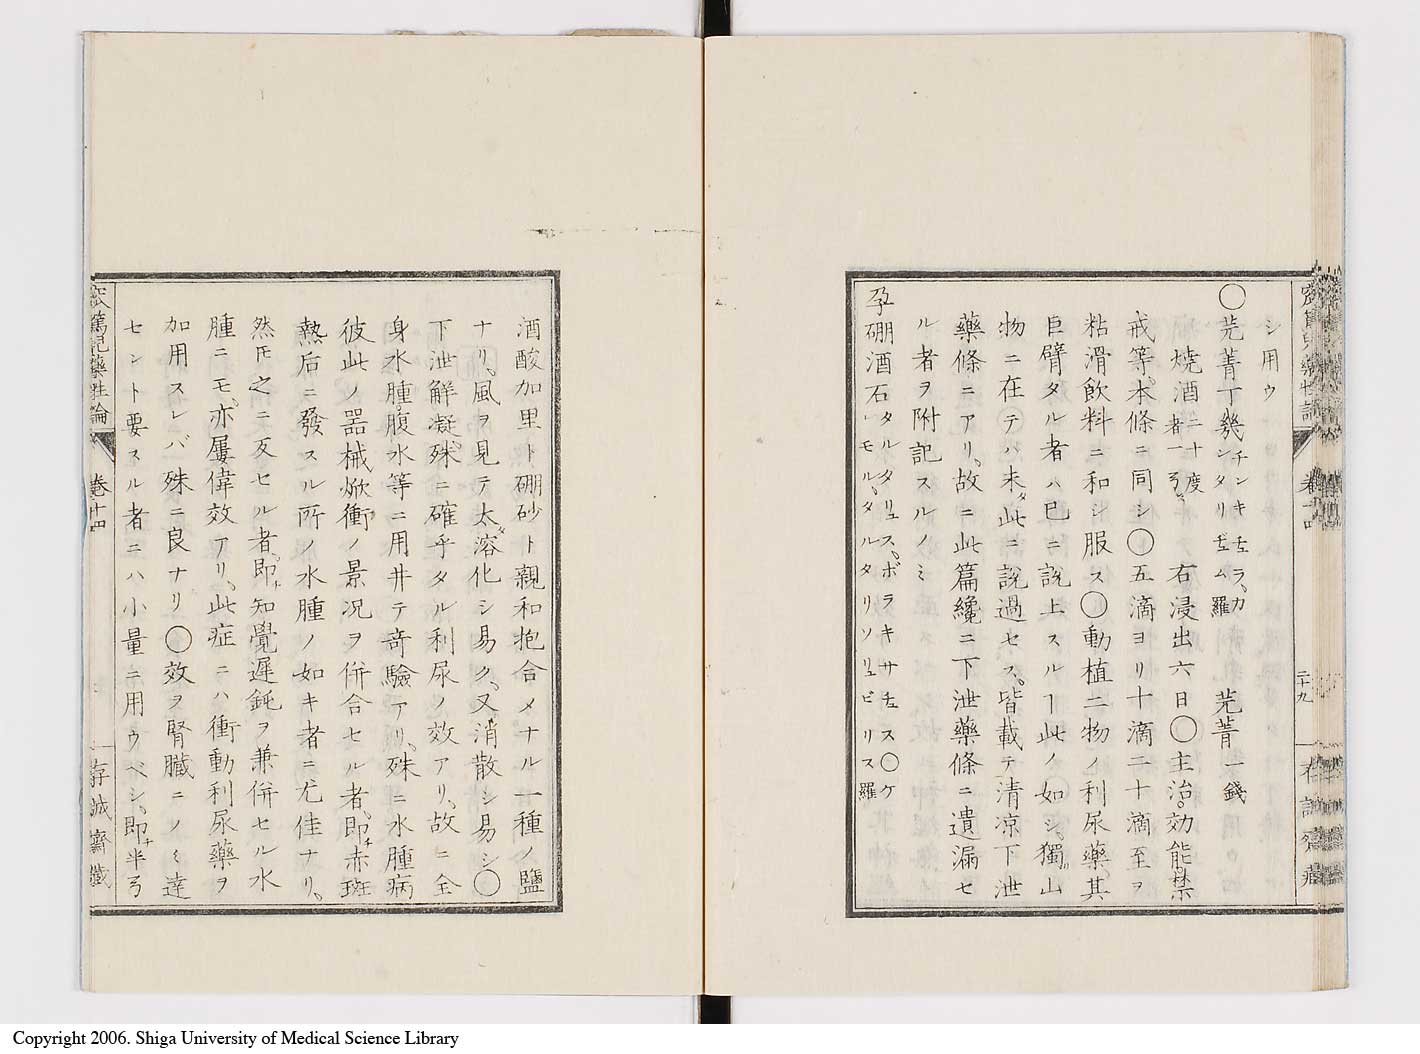 シ用ウ
〇芫菁丁幾チンキチュラ、カンタリヂュム羅 芫菁一錢
燒酒二十度者一弓 右浸出六日〇主治。効能禁
戒等。本條ニ同シ〇五滴ヨリ十滴二十滴至ヲ
粘滑飲料ニ和シ服ス〇動植二物ノ利尿藥。其
巨臂タル者ハ已ニ說上スルヿ此ノ如シ。獨山
物ニ在テハ未此ニ說過セス。皆載テ清涼下泄
藥條ニアリ。故ニ此篇纔ニ下泄藥條ニ遺漏セ
ル者ヲ附記スルノミ
孕硼酒石タルタリュス、ボラキサチュス〇ケレモル、タルタリソリュビリス羅
窊篤兒藥性論 卷十四 二十九 存誠齋藏
酒酸加里ト硼砂ト親和抱合メナル一種ノ鹽
ナリ。風ヲ見テ太溶化シ易ク。又消散シ易シ〇
下泄解凝。殊ニ確乎タル利尿ノ效アリ。故ニ全
身水腫。腹水等ニ用井テ竒驗アリ。殊ニ水腫病
彼此ノ器械焮衝ノ景況ヲ併合セル者。即赤斑
熱后ニ發スル所ノ水腫ノ如キ者ニ尤佳ナリ。
然𪜈之ニ反セル者。即知覺遲鈍ヲ兼併セル水
腫ニモ。亦屢偉效アリ。此症ニハ衝動利尿藥ヲ
加用スレバ殊ニ良ナリ〇效ヲ腎臟ニノミ達
セント要スル者ニハ小量ニ用ウベシ。即半弓
窊篤兒藥性論 卷十四 存誠齋藏
Copyright 2006. Shiga University of Medical Science Library